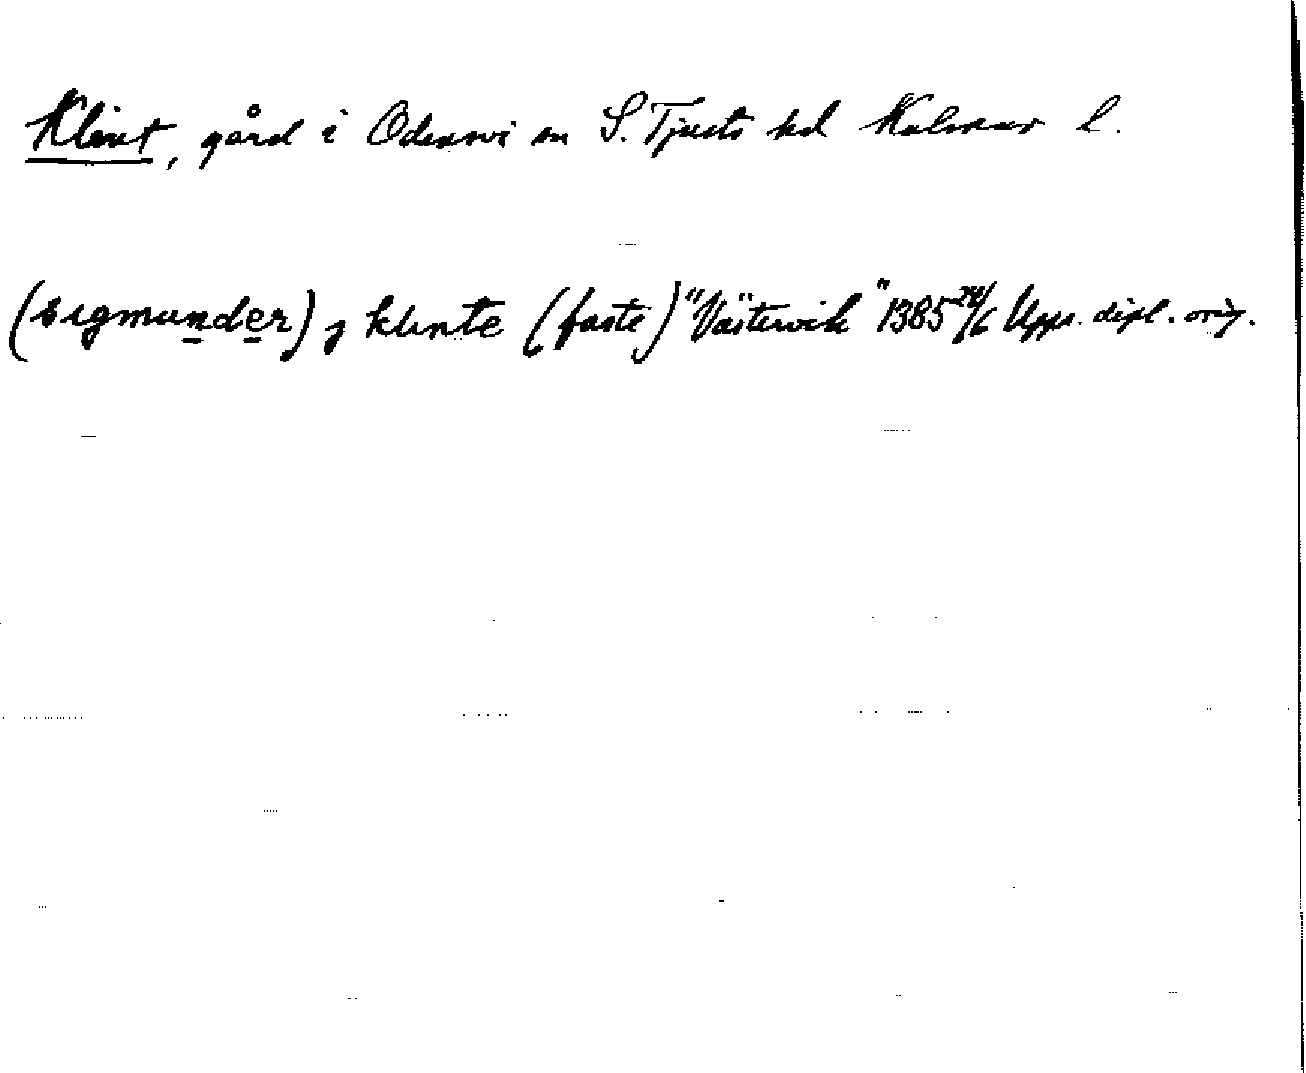 Klint, gård i Odensvi sn S. Tjusts hd Kalmar l.
(sigmunder) j klinte (faste) "Västervik" 1385 24/6 Upps. dipl. orig.